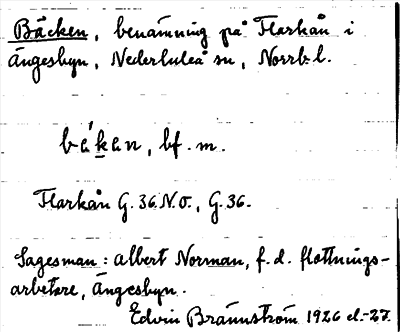 Bäcken, benämning på Flarkån i
Ängesbyn, Nederluleå sn, Norrb. l.
bá'ḵan, bf. m.
Flarkån G. 36 N.O., G. 36.
Sagesman: Albert Norman, f.d. flottnings-
arbetare, Ängesbyn.
Edvin Brännström 1926 el. -27.